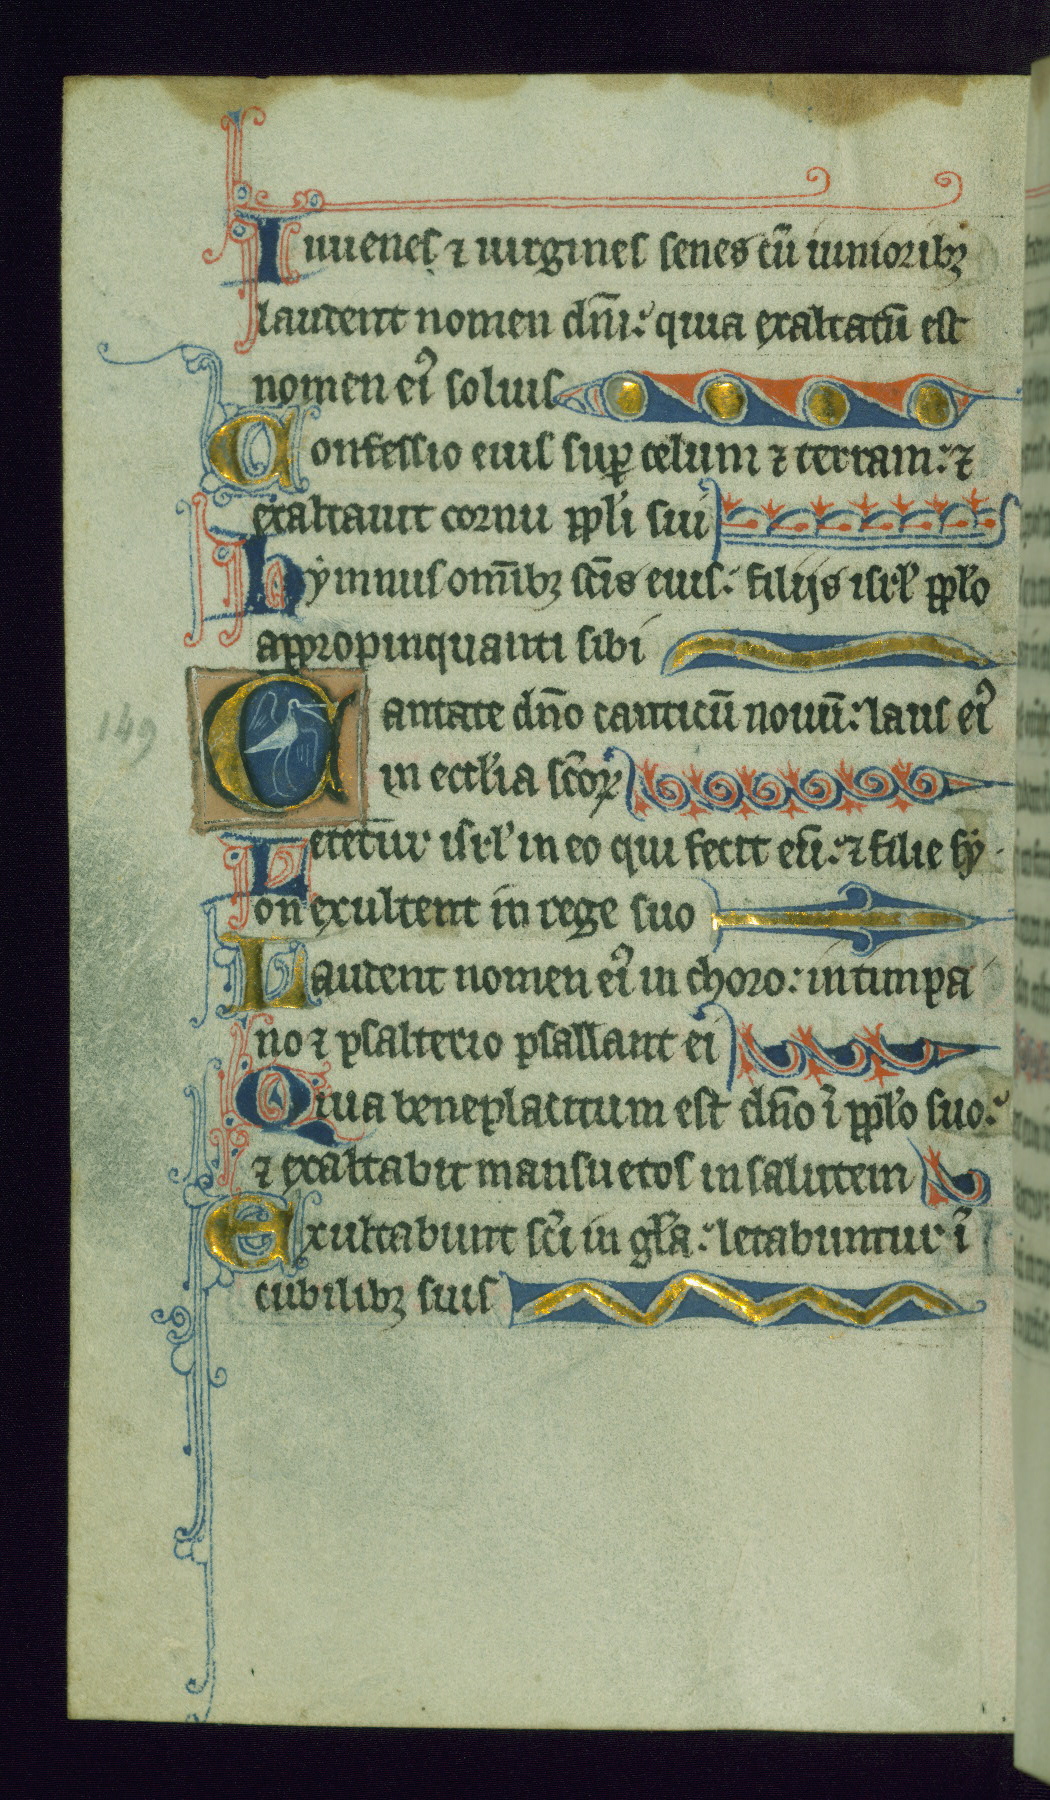 Iuuenes ⁊ uirgines senes cū iuniorib;
laudent nomen dn̄i: quia exaltatū est
nomen ei᾽ solius
Confessio eius sup̱ celum ⁊ terram: ⁊
exaltauit cornu ppl̄i sui
hẏmnus om̄ib; sc̄is eius: filijs isrl̄ ppl̄o
appropinquanti sibi
149
Cantate dn̄o canticū nouū: laus ei᾽
in eccl̄ia sc̄oꝝ
Letetur isrl̄ in eo qui fecit eū: ⁊ filie sẏ
on exultent in rege suo
Laudent nomen ei᾽ in choro: in timpa
no ⁊ psalterio psallant ei
Quia beneplacitum est dn̄o ī ppl̄o suo:
⁊ exaltabit mansuetos in salutem
Exultabunt sc̄i in gl̄a: letabuntur ī
cubilib; suis